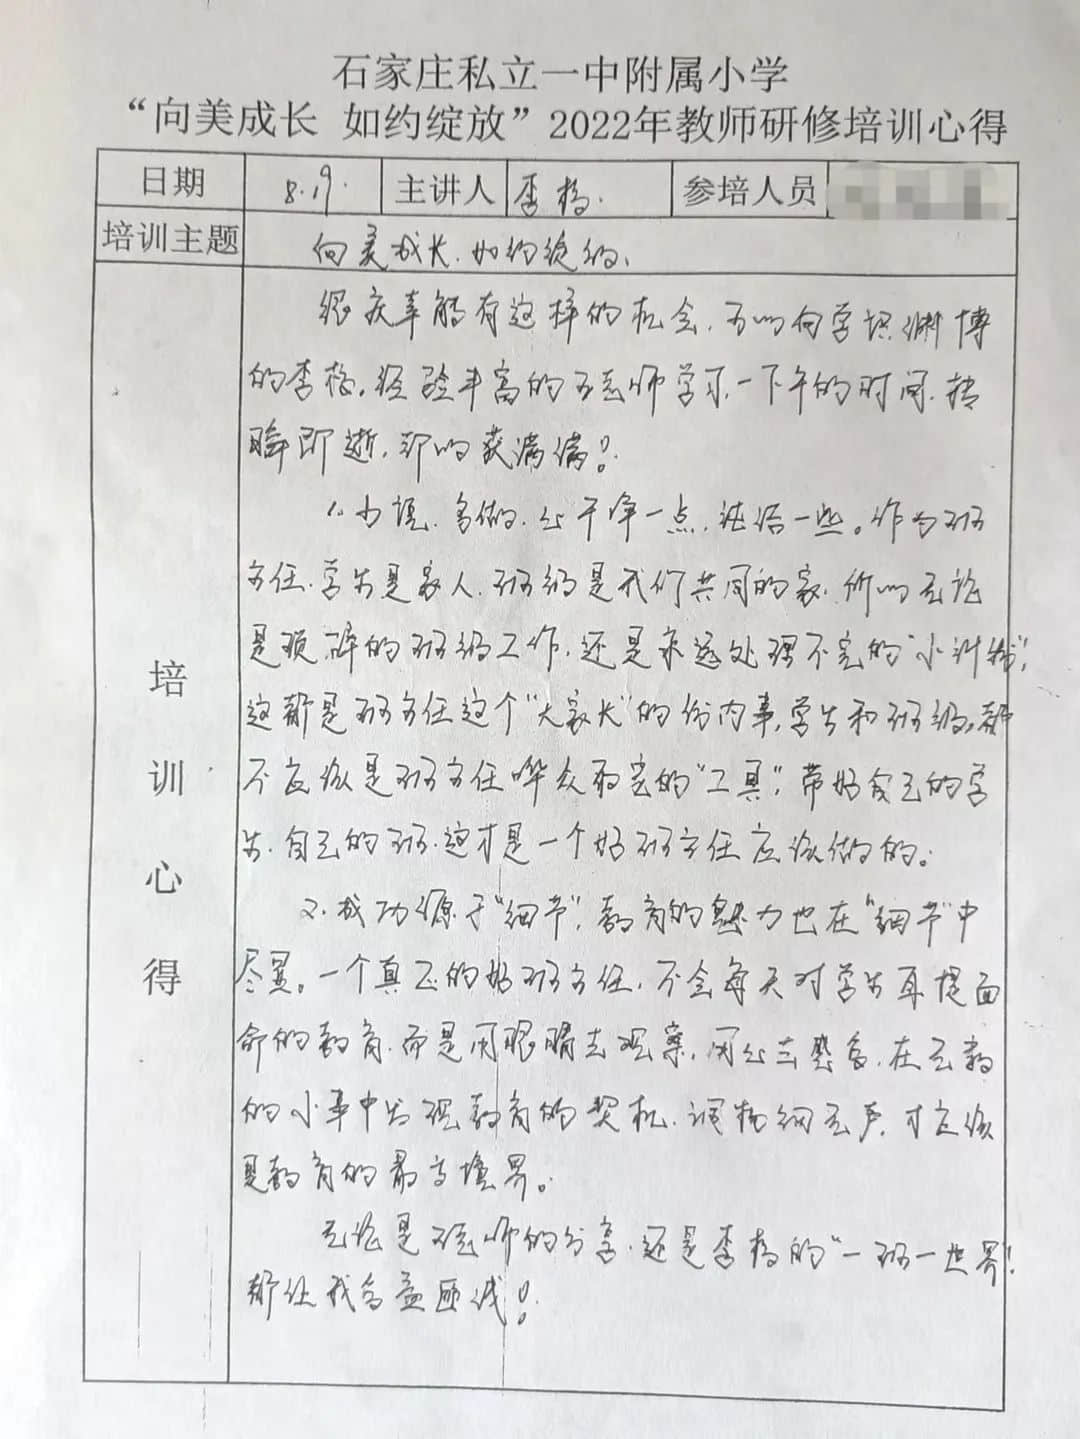 石家庄私立一中附属小学
“向美成长 如约绽放”2022年教师研修培训心得
日期 8.19. 主讲人 李杨. 参培人员
培训主题 向美成长.如约绽放.
培训心得
很庆幸能有这样的机会.可以向学识渊博
的李杨.经验丰富的王老师学习.一下午的时间.转
瞬即逝.却收获满满!
1.少说.多做.心干净一点.活一些。作为班
主任.学生是家人.班级是我们共同的家.所以无论
是琐碎的班级工作.还是永远处理不完的“小纠纷”.
这都是班主任这个“大家长”的份内事.学生和班级.都
不应该是班主任哗众取宠的“工具”.带好自己的学
生.自己的班.这才是一个好班主任应该做的。
2.成功源于“细节”.教育的魅力也在“细节”中
尽显。一个真正的好班主任.不会每天对学生耳提面
命的教育.而是用眼睛去观察.用心去感受.在无数
的小事中发现教育的契机.润物细无声.才应该
是教育的最高境界。
无论是王老师的分享.还是李杨的“一班一世界”!
都让我受益匪浅!